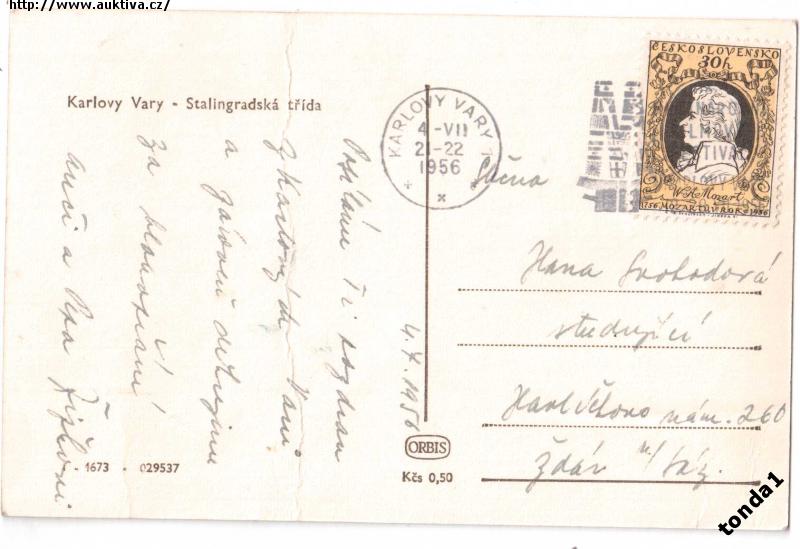 http://www.auktiva.cz/
Karlovy Vary - Stalingradská třída
Posílám Ti pozdrav
z Karlových Varů
a zároveň děkujeme
za blahopřání
Anči a Pepa
4.7.1956
KARLOVY VARY 1
4.-VII
21-22
1956
ČESKOSLOVENSKO
30h
W.A.Mozart
1756 MOZARTŮV ROK 1956
Slečna
Hana Svobodová
studující
Havlíčkovo nám. 260
Žďár n/Sáz.
ORBIS
Kčs 0,50
- 1673 - 029537
tonda1